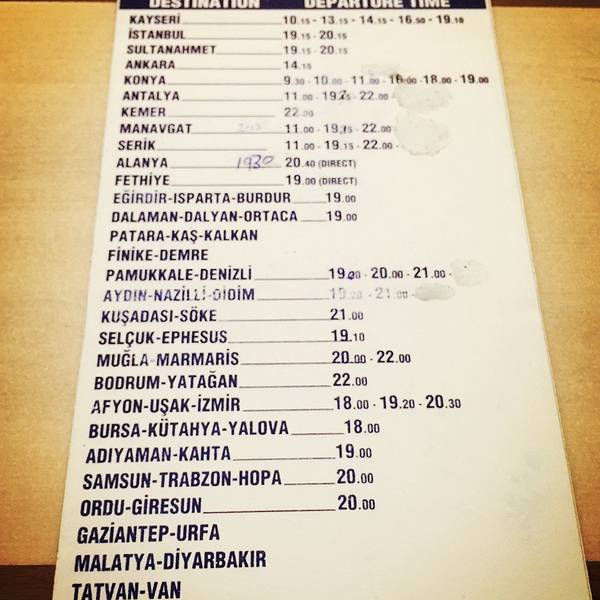 DESTINATION DEPARTURE TIME
KAYSERİ 10.15 - 13.15 - 14.15 - 16.50 - 19.10
İSTANBUL 19.15 - 20.15
SULTANAHMET 19.15 - 20.15
ANKARA 14.15
KONYA 9.30 - 10.00 - 11.00 - 16.00 - 18.00 - 19.00
ANTALYA 11.00 - 19.15 - 22.00 -
KEMER 22.00
MANAVGAT 11.00 - 19.15 - 22.00
SERİK 11.00 - 19.15 - 22.00 -
ALANYA 1930 20.40 (DIRECT)
FETHİYE 19.00 (DIRECT)
EĞİRDİR-ISPARTA-BURDUR 19.00
DALAMAN-DALYAN-ORTACA 19.00
PATARA-KAŞ-KALKAN
FİNİKE-DEMRE
PAMUKKALE-DENİZLİ 19.00 - 20.00 - 21.00 -
AYDIN-NAZİLLİ-DİDİM 19.20 - 21.00 -
KUŞADASI-SÖKE 21.00
SELÇUK-EPHESUS 19.10
MUĞLA-MARMARİS 20.00 - 22.00
BODRUM-YATAĞAN 22.00
AFYON-UŞAK-İZMİR 18.00 - 19.20 - 20.30
BURSA-KÜTAHYA-YALOVA 18.00
ADIYAMAN-KAHTA 19.00
SAMSUN-TRABZON-HOPA 20.00
ORDU-GİRESUN 20.00
GAZİANTEP-URFA
MALATYA-DİYARBAKIR
TATVAN-VAN